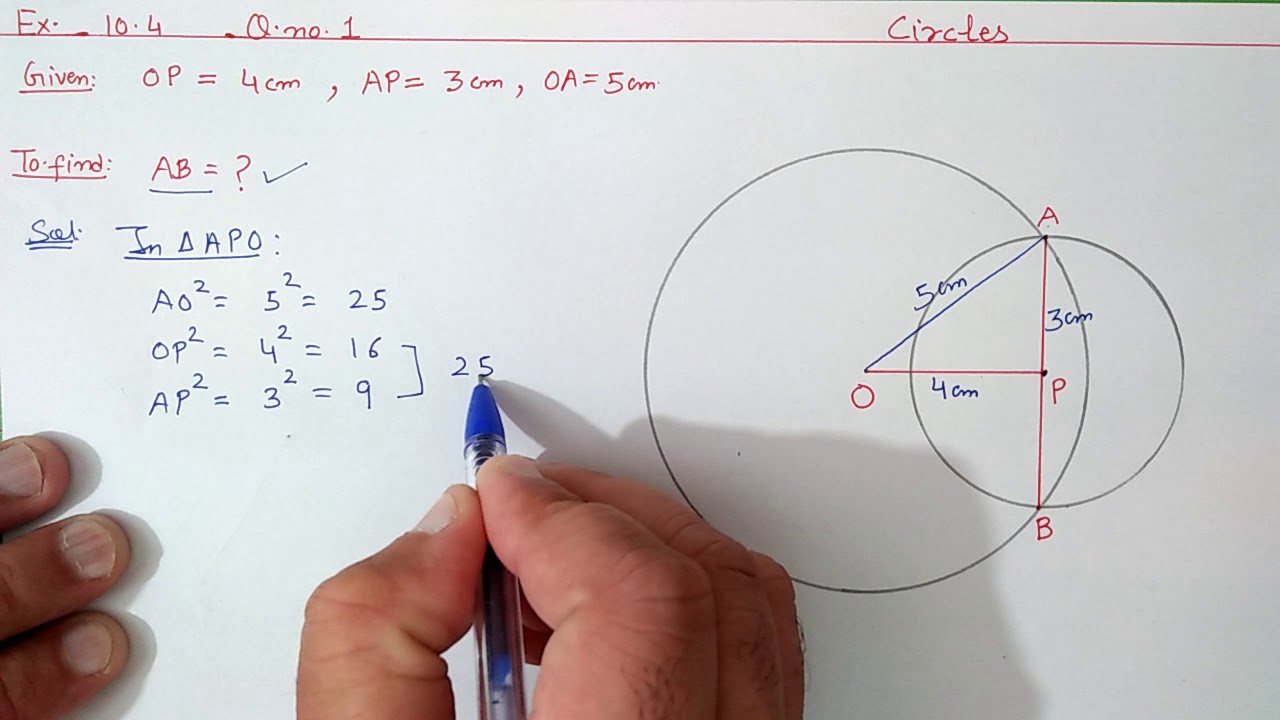 Ex. 10.4 Q.no.1 Circles
Given: OP = 4cm , AP= 3cm, OA=5cm.
To find: AB = ?
Sol. In Δ APO :
AO² = 5² = 25
OP² = 4² = 16
AP² = 3² = 9
25
A
5cm
3cm
O
4cm
P
B